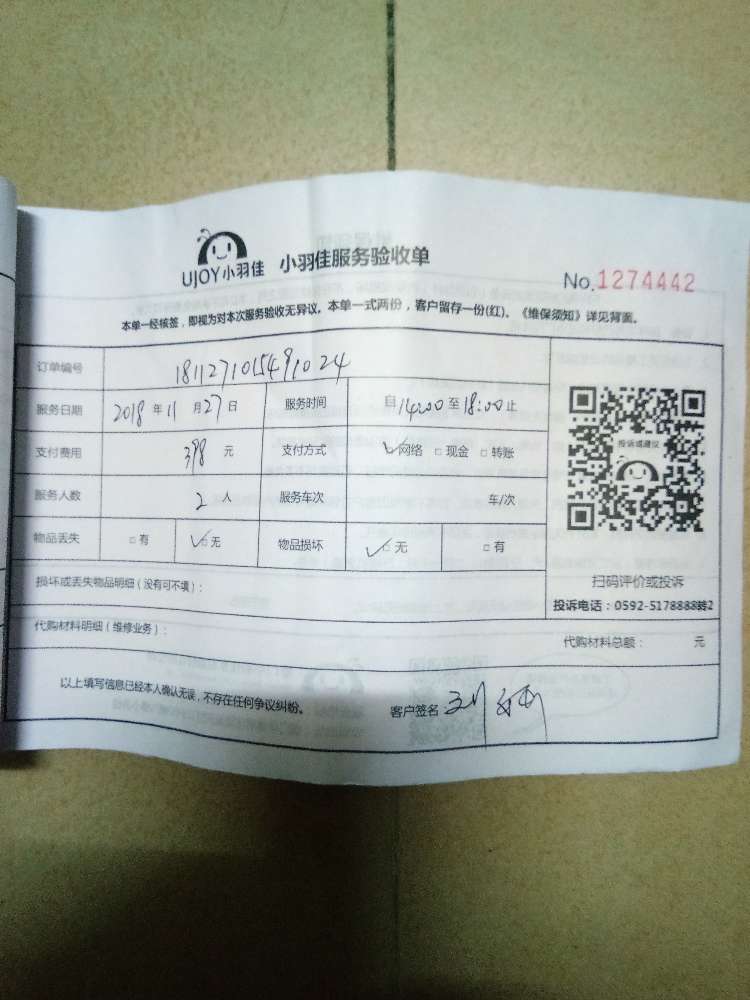 UJOY小羽佳 小羽佳服务验收单
No.1274442
本单一经核签，即视为对本次服务验收无异议。本单一式两份，客户留存一份(红)。《维保须知》详见背面。
订单编号 1811271015491024
服务日期 2018年11月27日 服务时间 自14:00至18:00止
支付费用 398元 支付方式 ✓网络 □现金 □转账
投诉或建议
服务人数 2人 服务车次 车/次
物品丢失 □有 ✓□无 物品损坏 ✓□无 □有
扫码评价或投诉
损坏或丢失物品明细（没有可不填）：
投诉电话：0592-5178888转2
代购材料明细（维修业务）：
代购材料总额： 元
以上填写信息已经本人确认无误，不存在任何争议纠纷。
客户签名